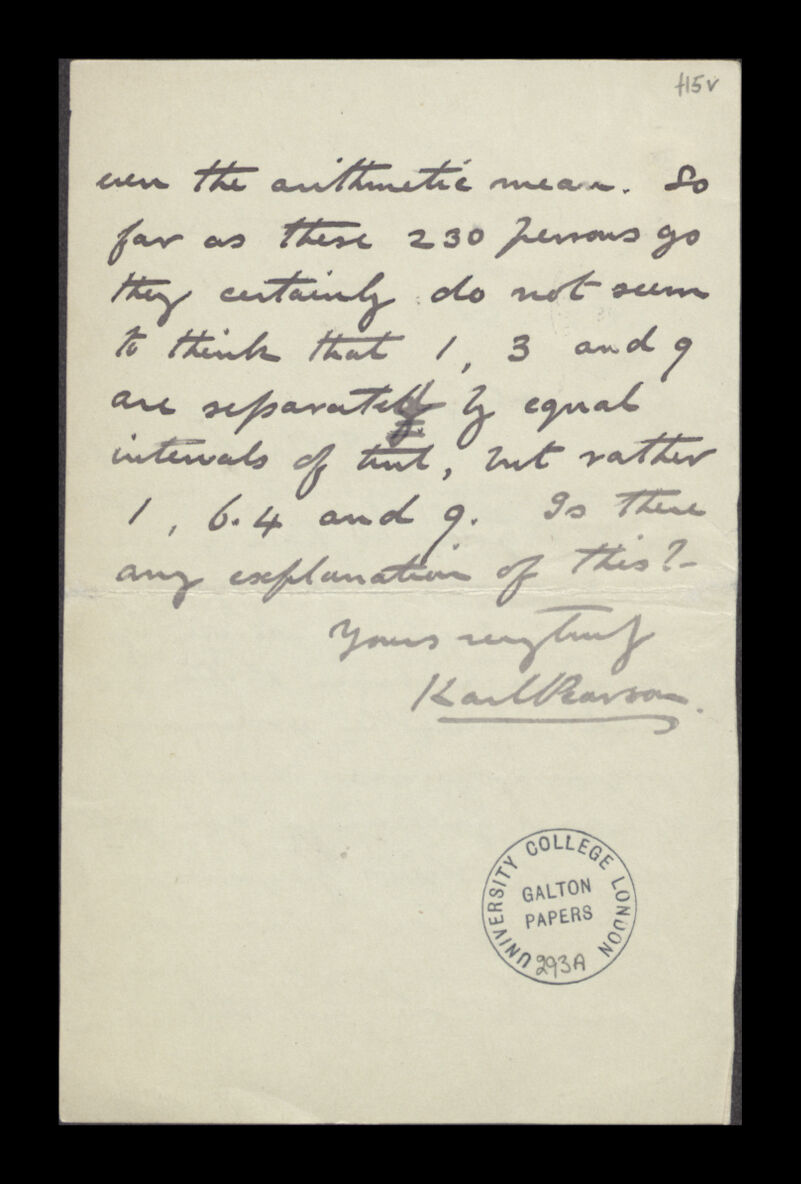 H5v
even the arithmetic mean. So
far as these 230 persons go
they certainly do not seem
to think that 1, 3 and 9
are separated by equal
intervals of tint, but rather
1, 6.4 and 9. Is there
any explanation of this?-
Yours very truly
Karl Pearson.
UNIVERSITY COLLEGE LONDON
GALTON
PAPERS
293A